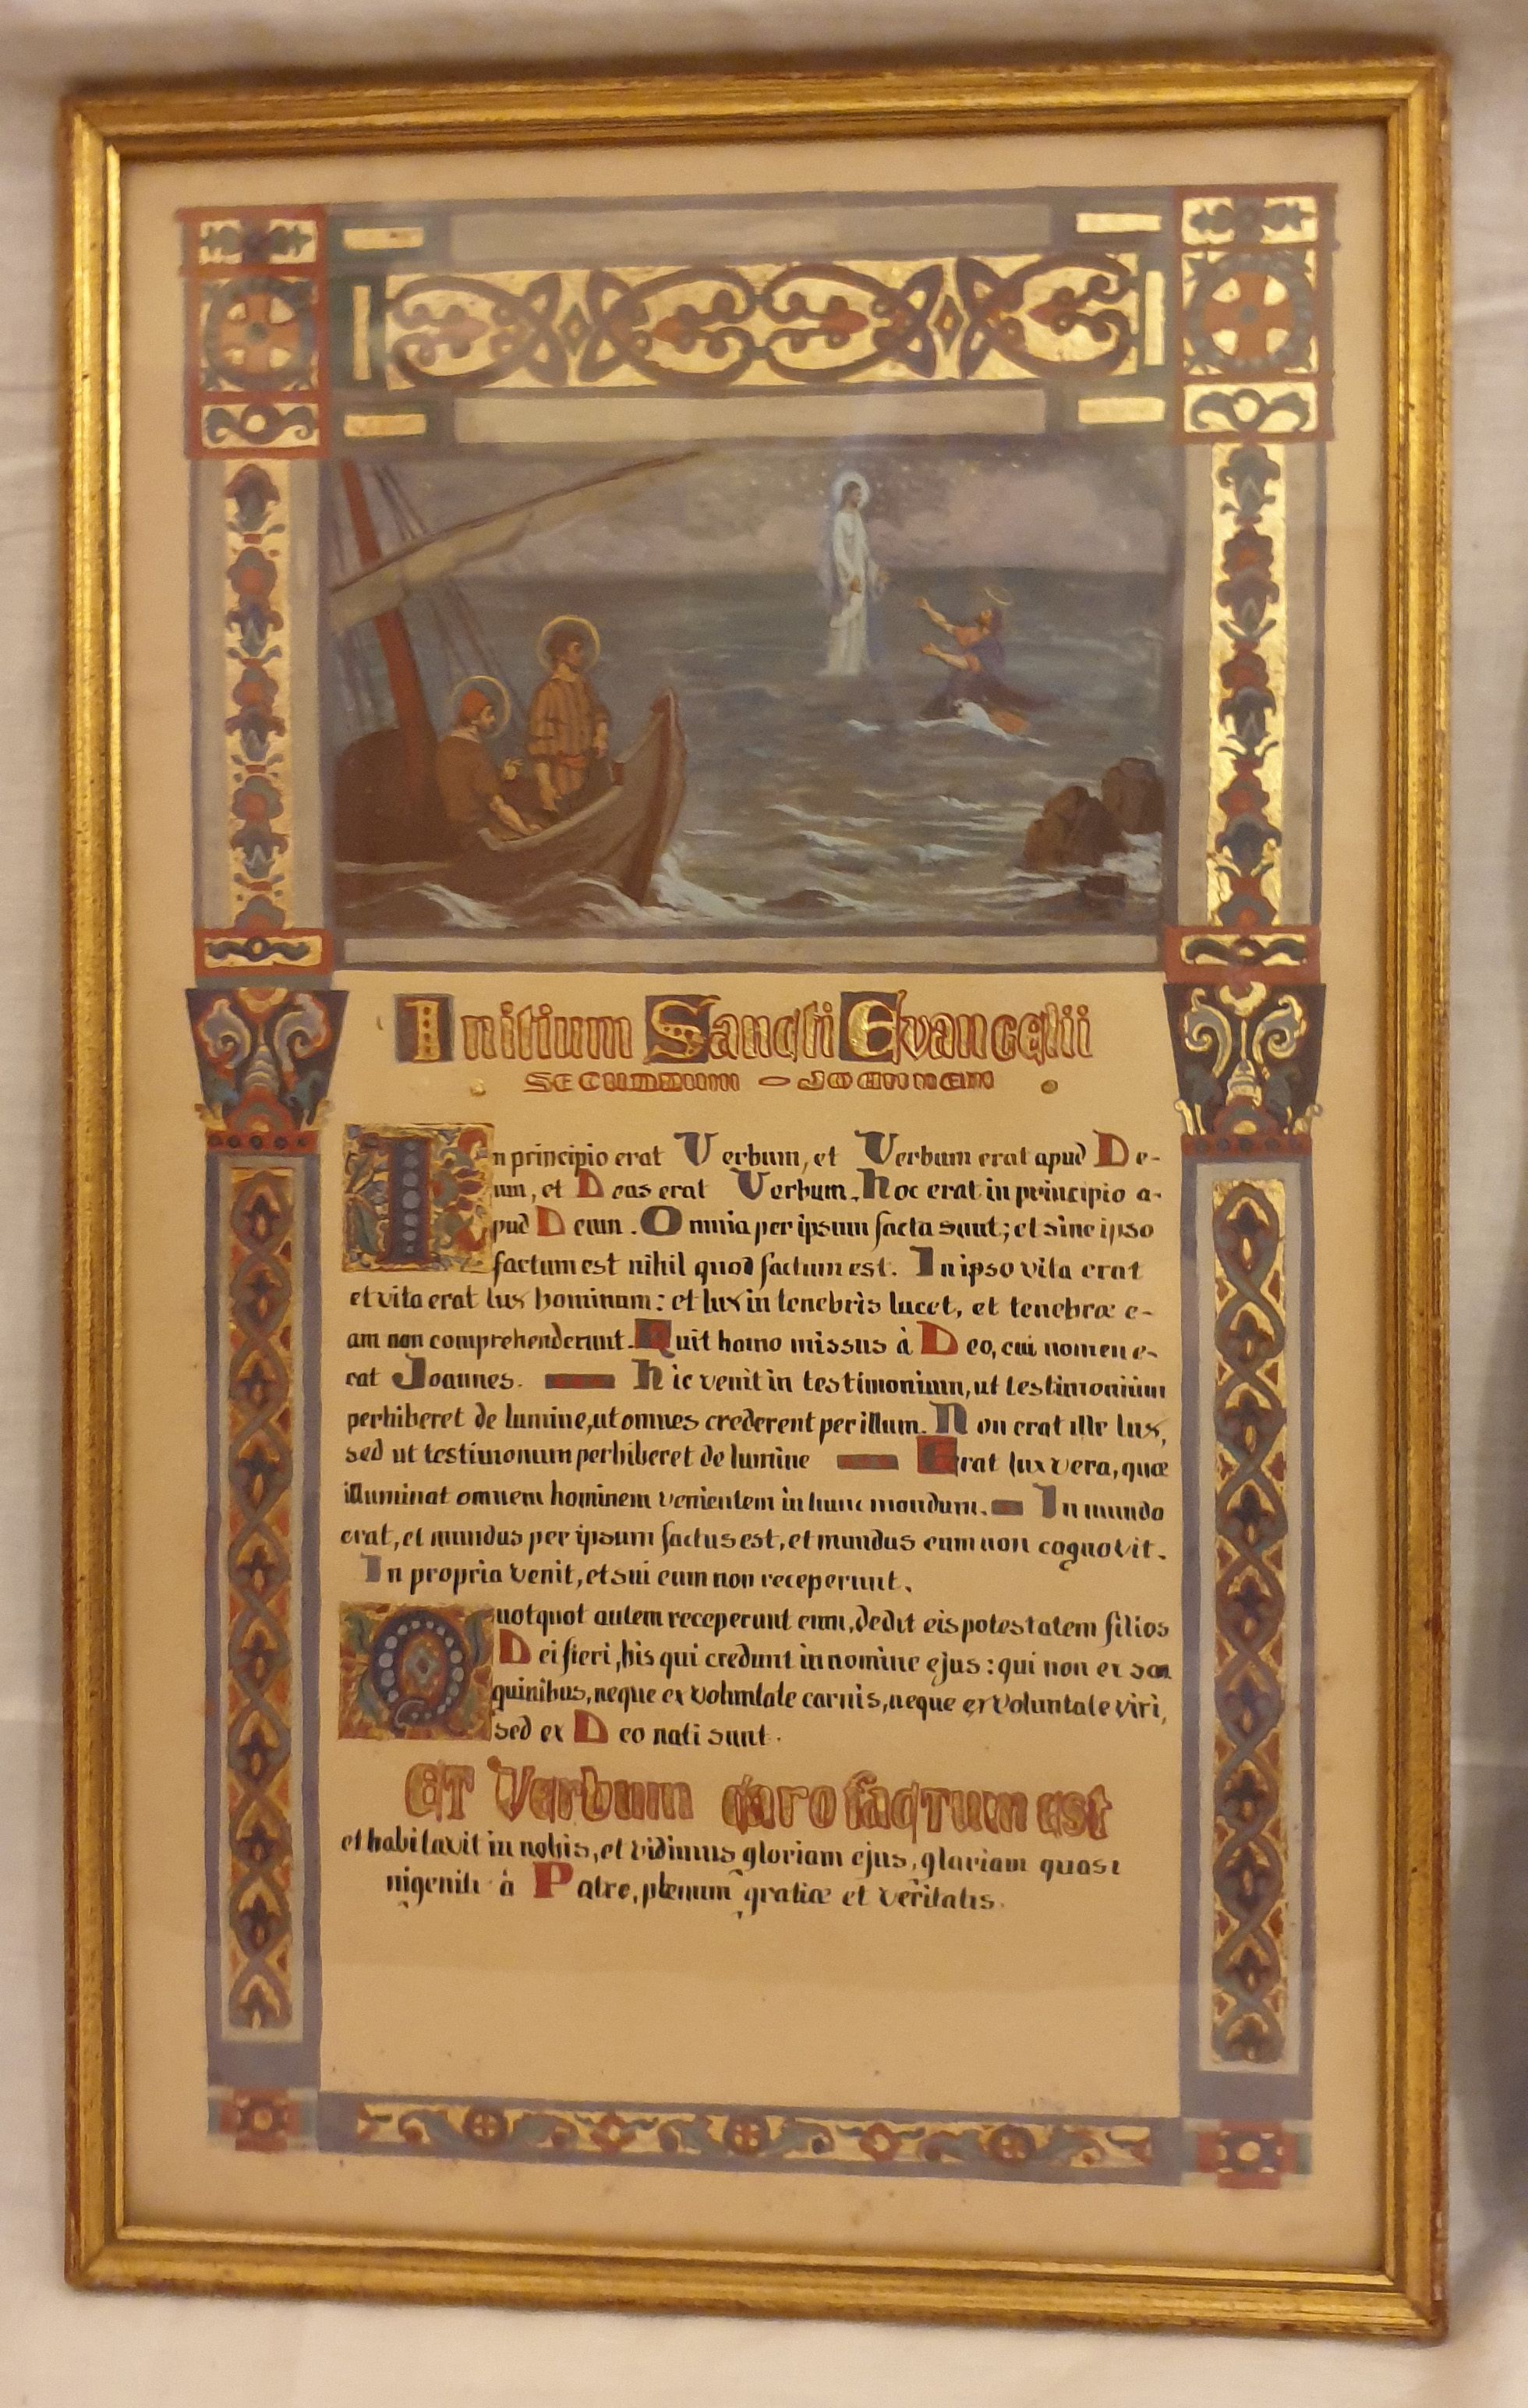 Initium Sancti Evangelii
SECUNDUM - JOANNEM
In principio erat Verbum, et Verbum erat apud De-
um, et Deus erat Verbum. Hoc erat in principio a-
pud Deum. Omnia per ipsum facta sunt; et sine ipso
factum est nihil quod factum est. In ipso vita erat
et vita erat lux hominum: et lux in tenebris lucet, et tenebræ e-
am non comprehenderunt. Fuit homo missus à Deo, cui nomen e-
rat Joannes. Hic venit in testimonium, ut testimonium
perhiberet de lumine, ut omnes crederent per illum. Non erat ille lux,
sed ut testimonum perhiberet de lumine Erat lux vera, quæ
illuminat omnem hominem venientem in hunc mundum. In mundo
erat, et mundus per ipsum factus est, et mundus eum non cognovit.
In propria venit, et sui eum non receperunt.
Quotquot autem receperunt eum, dedit eis potestatem filios
Dei fieri, his qui credunt in nomine ejus: qui non ex san
quinibus, neque ex voluntate carnis, neque ex voluntate viri,
sed ex Deo nati sunt.
ET Verbum caro facTum est
et habitavit in nobis, et vidimus gloriam ejus, gloriam quasi
nigeniti à Patre, plenum gratiæ et veritatis.